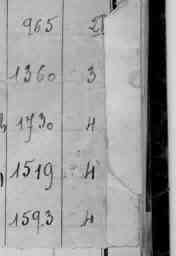 965
1360 3
1730 4
1519 4
1593 4